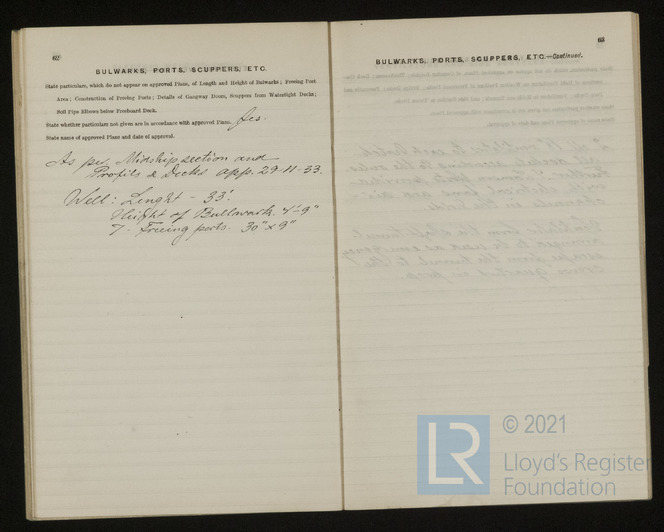 62
BULWARKS, PORTS, SCUPPERS, ETC.
State particulars, which do not appear on approved Plans, of Length and Height of Bulwarks; Freeing Port
Area; Construction of Freeing Ports; Details of Gangway Doors, Scuppers from Watertight Decks;
Soil Pipe Elbows below Freeboard Deck.
State whether particulars not given are in accordance with approved Plans. Yes.
State name of approved Plans and date of approval.
As per Midship section and
Profile & Decks app. 29-11-33.
Well: Lenght - 33'.
Height of Bullwark. 4'-9"
7 - Freeing ports. 30" x 9"
63
BULWARKS, PORTS, SCUPPERS, ETC.—Continued.
LR
© 2021
Lloyd's Register
Foundation